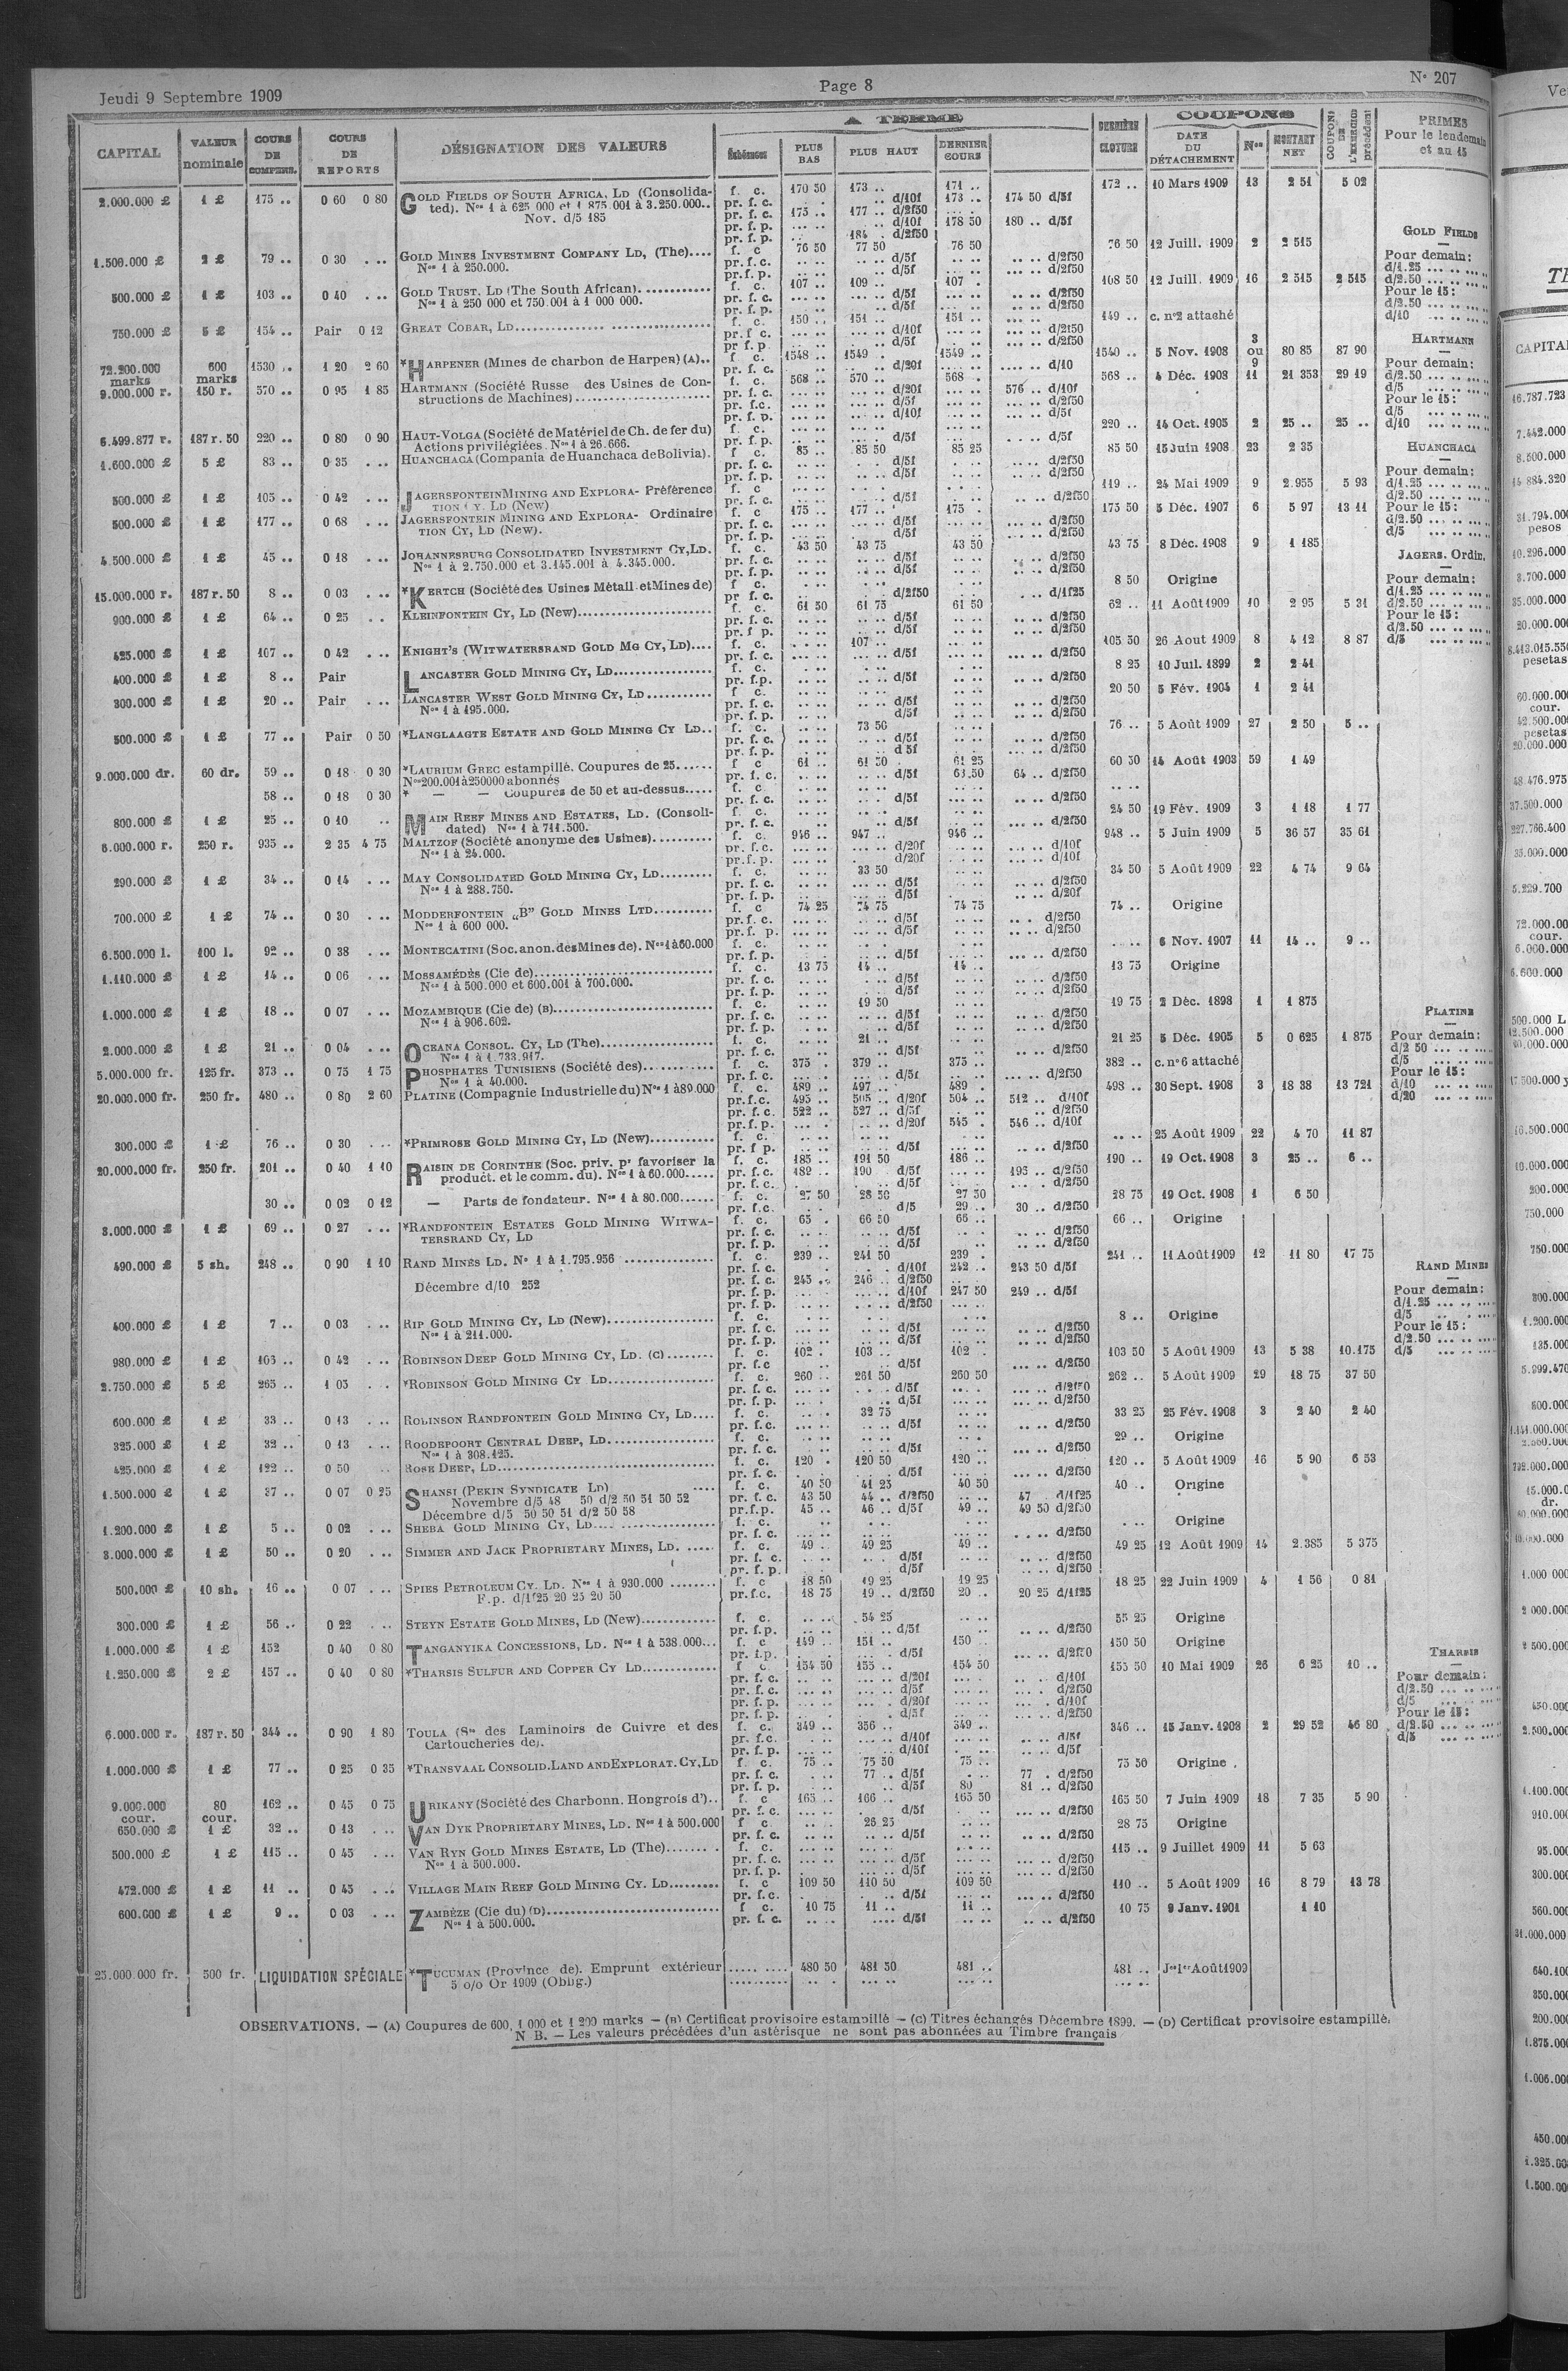 Jeudi 9 Septembre 1909
Page 8
N° 207
CAPITAL
VALEUR nominale
COURS DE COMPENS.
COURS DE REPORTS
DÉSIGNATION DES VALEURS
A TERME
Échéances
PLUS BAS
PLUS HAUT
DERNIER COURS
DERNIÈRE CLOTURE
COUPONS
DATE DU DÉTACHEMENT
Nos
MONTANT NET
COUPONS DE L'EXERCICE précédent
PRIMES Pour le lendemain et au 15
2.000.000 £ 1 £ 175 .. 0 60 0 80 GOLD FIELDS OF SOUTH AFRICA, LD (Consolida- f. c. 170 50 173 .. 171 .. 172 .. 10 Mars 1909 13 2 51 5 02
ted). Nos 1 à 625 000 et 1 875 001 à 3.250.000.. pr. f. c. d/10f 173 .. 174 50 d/5f
Nov. d/5 185 pr. f. c. 175 .. 177 .. d/2f50
pr. f. p. d/10f 178 50 180 .. d/5f
pr. f. p. 184 . d/2f50
1.500.000 £ 2 £ 79 .. 0 30 ... GOLD MINES INVESTMENT COMPANY LD, (The).... f. c 76 50 77 50 76 50 76 50 12 Juill. 1909 2 2 515
Nos 1 à 250.000. pr. f. c. d/5f d/2f50
pr. f. p. d/5f d/2f50
500.000 £ 1 £ 103 .. 0 40 ... GOLD TRUST, LD (The South African)............ f. c. 107 .. 109 .. 107 . 108 50 12 Juill. 1909 16 2 515 2 515
Nos 1 à 250 000 et 750.001 à 1 000 000. pr. f. c. d/5f d/2f50
pr. f. p. d/5f d/2f50
750.000 £ 5 £ 154 .. Pair 0 12 GREAT COBAR, LD f. c. 150 .. 151 .. 151 .. 149 .. c. n°2 attaché
pr. f c. d/10f d/2f50
pr f. p. d/5f d/2f50
72.200.000 marks 600 marks 1530 .. 1 20 2 60 *HARPENER (Mines de charbon de Harpen) (A)... f c. 1548 .. 1549 . 1549 .. 1540 .. 5 Nov. 1908 3 ou 9 80 85 87 90
pr. f. c. d/20f d/10
9.000.000 r. 150 r. 570 .. 0 95 1 85 HARTMANN (Société Russe des Usines de Con- f. c. 568 .. 570 .. 568 . 568 .. 4 Déc. 1908 11 21 353 29 19
structions de Machines) pr. f. c. d/20f 576 .. d/10f
pr. f.c. d/5f d/2f50
pr. f. p. d/10f d/5f
6.499.877 r. 187 r. 50 220 .. 0 80 0 90 HAUT-VOLGA (Société de Matériel de Ch. de fer du) f. c. 220 .. 14 Oct. 1905 2 25 .. 25 ..
Actions privilégiées. Nos 1 à 26.666. pr. f. p. d/5f d/5f
1.600.000 £ 5 £ 83 .. 0 35 ... HUANCHACA (Compania de Huanchaca de Bolivia). f c. 85 .. 85 50 85 25 85 50 15 Juin 1908 23 2 35
pr. f. c. d/5f d/2f50
pr. f. p. d/5f d/2f50
500.000 £ 1 £ 105 .. 0 42 ... JAGERSFONTEIN MINING AND EXPLORA- Préférence f. c 119 .. 24 Mai 1909 9 2.955 5 93
TION CY. LD (New) pr. f. c. d/5f d/2f50
500.000 £ 1 £ 177 .. 0 68 ... JAGERSFONTEIN MINING AND EXPLORA- Ordinaire f. c 175 .. 177 .. 175 . 175 50 5 Déc. 1907 6 5 97 13 11
TION CY, LD (New). pr. f. c. d/5f d/2f50
pr. f. p. d/5f d/2f50
4.500.000 £ 1 £ 45 .. 0 18 ... JOHANNESBURG CONSOLIDATED INVESTMENT CY,LD. f. c. 43 50 43 75 43 50 43 75 8 Déc. 1908 9 1 185
Nos 1 à 2.750.000 et 3.145.001 à 4.345.000. pr. f. c. d/5f d/2f50
pr. f. p. d/5f d/2f50
15.000.000 r. 187 r. 50 8 .. 0 03 ... *KERTCH (Société des Usines Métall. et Mines de) f c. 8 50 Origine
pr f. c. d/2f50 d/1f25
900.000 £ 1 £ 64 .. 0 25 .. KLEINFONTEIN CY, LD (New) f. c. 61 50 61 75 61 50 62 .. 11 Août 1909 10 2 95 5 31
pr. f. c. d/5f d/2f50
pr. f p. d/5f d/2f50
425.000 £ 1 £ 107 .. 0 42 ... KNIGHT'S (WITWATERSRAND GOLD MG CY, LD).... f. c. 107 .. 105 50 26 Aout 1909 8 4 12 8 87
pr. f. c. d/5f d/2f50
400.000 £ 1 £ 8 .. Pair LANCASTER GOLD MINING CY, LD f. c. 8 25 10 Juil. 1899 2 2 41
pr. f.p. d/5f d/2f50
300.000 £ 1 £ 20 .. Pair ... LANCASTER WEST GOLD MINING CY, LD f c. 20 50 5 Fév. 1904 1 2 41
Nos 1 à 495.000. pr. f. c. d/5f d/2f50
pr. f. p. d/5f d/2f50
500.000 £ 1 £ 77 .. Pair 0 50 *LANGLAAGTE ESTATE AND GOLD MINING CY LD.. f. c. 73 50 76 .. 5 Août 1909 27 2 50 5 ..
pr. f. c. d/5f d/2f50
pr. f. p. d 5f d/2f50
9.000.000 dr. 60 dr. 59 .. 0 18 0 30 *LAURIUM GREC estampillé. Coupures de 25...... f c 61 .. 61 50 . 61 25 60 50 14 Août 1903 59 1 49
Nos 200.001 à 250000 abonnés pr. f. c. d/5f 63.50 64 .. d/2f50
58 .. 0 18 0 30 * — — Coupures de 50 et au-dessus..... f. c.
pr. f. c. d/5f d/2f50
800.000 £ 1 £ 25 .. 0 10 .. MAIN REEF MINES AND ESTATES, LD. (Consoli- f. c. 24 50 19 Fév. 1909 3 1 18 1 77
dated) Nos 1 à 711.500. pr. f. c. d/5f d/2f50
6.000.000 r. 250 r. 935 .. 2 35 4 75 MALTZOF (Société anonyme des Usines) f. c. 946 .. 947 .. 946 .. 948 .. 5 Juin 1909 5 36 57 35 61
Nos 1 à 24.000. pr. f.c. d/20f d/10f
pr.f. p. d/20f d/10f
290.000 £ 1 £ 34 .. 0 14 ... MAY CONSOLIDATED GOLD MINING CY, LD f. c. 33 50 34 50 5 Août 1909 22 4 74 9 64
Nos 1 à 288.750. pr. f. c. d/5f d/2f50
pr. f. p. d/5f d/20f
700.000 £ 1 £ 74 .. 0 30 ... MODDERFONTEIN „B" GOLD MINES LTD f. c 74 25 74 75 74 75 74 .. Origine
Nos 1 à 600 000. pr. f. c. d/5f d/2f50
pr. f. p. d/5f d/2f50
6.500.000 l. 100 l. 92 .. 0 38 ... MONTECATINI (Soc. anon. des Mines de). Nos 1 à 60.000 f. c. 6 Nov. 1907 11 14 .. 9 ..
pr. f. p. d/5f d/2f50
1.110.000 £ 1 £ 14 .. 0 06 ... MOSSAMÉDÈS (Cie de) f. c. 13 75 14 .. 14 .. 13 75 Origine
Nos 1 à 500.000 et 600.001 à 700.000. pr. f. c. d/5f d/2f50
pr. f. p. d/5f d/2f50
1.000.000 £ 1 £ 18 .. 0 07 ... MOZAMBIQUE (Cie de) (B) f. c. 19 50 19 75 2 Déc. 1898 1 1 875
Nos 1 à 906.602. pr. f. c. d/5f d/2f50
pr. f. p. d/5f d/2f50
2.000.000 £ 1 £ 21 .. 0 04 ... OCEANA CONSOL. CY, LD (The) f. c. 21 .. 21 25 5 Déc. 1905 5 0 625 1 875
Nos 1 à 1.733.917. pr. f. c. d/5f d/2f50
5.000.000 fr. 125 fr. 373 .. 0 75 1 75 PHOSPHATES TUNISIENS (Société des) f. c. 375 . 379 .. 375 .. 382 .. c. n° 6 attaché
Nos 1 à 40.000. pr. f. c. d/5f d/2f50
20.000.000 fr. 250 fr. 480 .. 0 80 2 60 PLATINE (Compagnie Industrielle du) Nos 1 à 89.000 f. c. 489 .. 497 .. 489 . 498 .. 30 Sept. 1908 3 18 38 13 721
pr.f.c. 495 .. 505 .. d/20f 504 .. 512 .. d/10f
pr. f. c. 522 .. 527 .. d/5f d/2f50
pr.f.p. d/20f 545 . 546 .. d/10f
300.000 £ 1 £ 76 .. 0 30 ... *PRIMROSE GOLD MINING CY, LD (New) f. c. 25 Août 1909 22 4 70 11 87
pr. f p. d/5f d/2f50
20.000.000 fr. 250 fr. 201 .. 0 40 1 10 RAISIN DE CORINTHE (Soc. priv. pr favoriser la f. c. 185 .. 191 50 186 .. 190 .. 19 Oct. 1908 3 25 .. 6 ..
product. et le comm. du). Nos 1 à 60.000..... pr. f. c. 189 .. 190 . d/5f 195 .. d/2f50
pr. f. c. d/5f d/2f50
30 .. 0 02 0 12 — Parts de fondateur. Nos 1 à 80.000...... f. c. 27 50 28 50 27 50 28 75 19 Oct. 1908 1 6 50
pr. f.c. d/5 29 .. 30 .. d/2f50
3.000.000 £ 1 £ 69 .. 0 27 ... *RANDFONTEIN ESTATES GOLD MINING WITWA- f. c. 65 . 66 50 66 .. 66 .. Origine
TERSRAND CY, LD pr. f. c. d/5f d/2f50
pr. f. p. d/5f d/2f50
490.000 £ 5 sh. 248 .. 0 90 1 10 RAND MINES LD. N° 1 à 1.795.956 f. c. 239 .. 241 50 239 . 241 .. 11 Août 1909 12 11 80 17 75
pr. f. c. d/10f 242 .. 243 50 d/5f
Décembre d/10 252 pr. f. c. 245 .. 246 .. d/2f50
pr. f. p. d/10f 247 50 249 .. d/5f
pr. f. p. d/2f50
400.000 £ 1 £ 7 .. 0 03 ... RIP GOLD MINING CY, LD (New) f. c. 8 .. Origine
Nos 1 à 211.000. pr. f. c. d/5f d/2f50
pr. f. p. d/5f d/2f50
980.000 £ 1 £ 103 .. 0 42 ... ROBINSON DEEP GOLD MINING CY, LD. (C) f. c. 102 . 103 .. 102 . 103 50 5 Août 1909 13 5 38 10.175
pr. f.c d/5f d/2f50
2.750.000 £ 5 £ 265 .. 1 05 ... *ROBINSON GOLD MINING CY LD f. c. 260 .. 261 50 260 50 262 .. 5 Août 1909 29 18 75 37 50
pr. f. c. d/5f d/2f50
pr. f. p. d/5f d/2f50
600.000 £ 1 £ 33 .. 0 13 ... ROBINSON RANDFONTEIN GOLD MINING CY, LD.... f. c. 32 75 33 25 25 Fév. 1908 3 2 40 2 40
pr. f.c. d/5f d/2f50
325.000 £ 1 £ 32 .. 0 13 ... ROODEPOORT CENTRAL DEEP, LD f. c. 29 .. Origine
Nos 1 à 308.125. pr. f. c. d/5f d/2f50
425.000 £ 1 £ 122 .. 0 50 .. ROSE DEEP, LD f. c. 120 . 120 50 120 .. 120 .. 5 Août 1909 16 5 90 6 53
pr. f. c. d/5f d/2f50
1.500.000 £ 1 £ 37 .. 0 07 0 25 SHANSI (PEKIN SYNDICATE LD) f. c. 40 50 41 25 40 50 40 .. Origine
Novembre d/5 48 50 d/2 50 51 50 52 pr. f. c. 43 50 44 .. d/2f50 47 . d/1f25
Décembre d/5 50 50 51 d/2 50 58 pr.f.p. 45 .. 46 .. d/5f 49 .. 49 50 d/2f50
1.200.000 £ 1 £ 5 .. 0 02 ... SHEBA GOLD MINING CY, LD f. c. Origine
pr. f. c. d/2f50
3.000.000 £ 1 £ 50 .. 0 20 ... SIMMER AND JACK PROPRIETARY MINES, LD. ..... f. c. 49 .. 49 25 49 .. 49 25 12 Août 1909 14 2.385 5 375
pr. f. c. d/5f d/2f50
pr. f. p. d/5f d/2f50
500.000 £ 10 sh. 16 .. 0 07 ... SPIES PETROLEUM CY. LD. Nos 1 à 930.000 f. c 18 50 19 25 19 25 18 25 22 Juin 1909 4 1 56 0 81
F.p. d/1f25 20 25 20 50 pr.f.c. 18 75 19 .. d/2f50 20 .. 20 25 d/1f25
300.000 £ 1 £ 56 .. 0 22 ... STEYN ESTATE GOLD MINES, LD (New) f. c. 54 25 55 25 Origine
pr. f. p. d/5f d/2f50
1.000.000 £ 1 £ 152 0 40 0 80 TANGANYIKA CONCESSIONS, LD. Nos 1 à 538.000... f. c 149 .. 151 .. 150 .. 150 50 Origine
pr. f.p. d/5f d/2f50
1.250.000 £ 2 £ 157 .. 0 40 0 80 *THARSIS SULFUR AND COPPER CY LD f c. 154 50 155 .. 154 50 155 50 10 Mai 1909 26 6 25 10 ..
pr. f. c. d/20f d/10f
pr. f. c. d/5f d/2f50
pr. f. p. d/20f d/10f
pr. f. p. d/5f d/2f50
6.000.000 r. 187 r. 50 344 .. 0 90 1 80 TOULA (Sté des Laminoirs de Cuivre et des f. c. 349 .. 356 .. 349 .. 346 .. 15 Janv. 1908 2 29 52 46 80
Cartoucheries de). pr. f.c. d/10f d/5f
pr. f. p. d/10f d/5f
1.000.000 £ 1 £ 77 .. 0 25 0 35 *TRANSVAAL CONSOLID. LAND AND EXPLORAT. CY, LD f. c. 75 .. 75 50 75 .. 75 50 Origine
pr. f. c. 77 .. d/5f 77 . d/2f50
pr. f. p. d/5f 80 81 .. d/2f50
9.000.000 cour. 80 cour. 162 .. 0 45 0 75 URIKANY (Société des Charbonn. Hongrois d').. f. c 165 .. 166 .. 165 50 165 50 7 Juin 1909 18 7 35 5 90
pr. f. c. d/5f d/2f50
650.000 £ 1 £ 32 .. 0 13 ... VAN DYK PROPRIETARY MINES, LD. Nos 1 à 500.000 f c. 26 25 28 75 Origine
pr. f. c. d/5f d/2f50
500.000 £ 1 £ 115 .. 0 45 ... VAN RYN GOLD MINES ESTATE, LD (The) f. c. 115 .. 9 Juillet 1909 11 5 63
Nos 1 à 500.000. pr. f. c. d/5f d/2f50
pr. f. p. d/5f d/2f50
472.000 £ 1 £ 11 .. 0 45 ... VILLAGE MAIN REEF GOLD MINING CY. LD f. c 109 50 110 50 109 50 110 .. 5 Août 1909 16 8 79 13 78
pr. f.c. d/5f d/2f50
600.000 £ 1 £ 9 .. 0 03 ... ZAMBÈZE (Cie du) (D) f c. 10 75 11 .. 11 .. 10 75 9 Janv. 1901 1 10
Nos 1 à 500.000. pr. f. c. d/5f d/2f50
25.000.000 fr. 500 fr. LIQUIDATION SPÉCIALE *TUCUMAN (Province de). Emprunt extérieur 480 50 481 50 481 .. 481 .. Jce 1er Août 1909
5 o/o Or 1909 (Oblig.)
GOLD FIELDS
Pour demain:
d/1.25
d/2.50
Pour le 15:
d/2.50
d/10
HARTMANN
Pour demain:
d/2.50
d/5
Pour le 15:
d/5
d/10
HUANCHACA
Pour demain:
d/1.25
d/2.50
Pour le 15:
d/2.50
d/5
JAGERS. Ordin.
Pour demain:
d/1.25
d/2.50
Pour le 15:
d/2.50
d/5
PLATINE
Pour demain:
d/2 50
d/5
Pour le 15:
d/10
d/20
RAND MINES
Pour demain:
d/1.25
d/5
Pour le 15:
d/2.50
d/5
THARSIS
Pour demain:
d/2.50
d/5
Pour le 15:
d/2.50
d/5
OBSERVATIONS. — (A) Coupures de 600, 1 000 et 1 200 marks — (B) Certificat provisoire estampillé — (C) Titres échangés Décembre 1899. — (D) Certificat provisoire estampillé.
N B. — Les valeurs précédées d'un astérisque ne sont pas abonnées au Timbre français